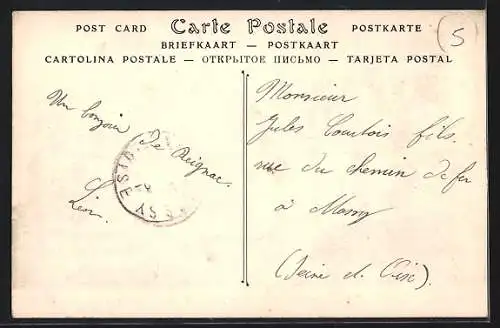 POST CARD Carte Postale POSTKARTE
BRIEFKAART — POSTKAART
CARTOLINA POSTALE — ОТКРЫТОЕ ПИСЬМО — TARJETA POSTAL
5
Un bonjour
de Reignac.
Léon.
Monsieur
Jules Courtois fils.
rue du chemin de fer
à Massy
(Seine et Oise).